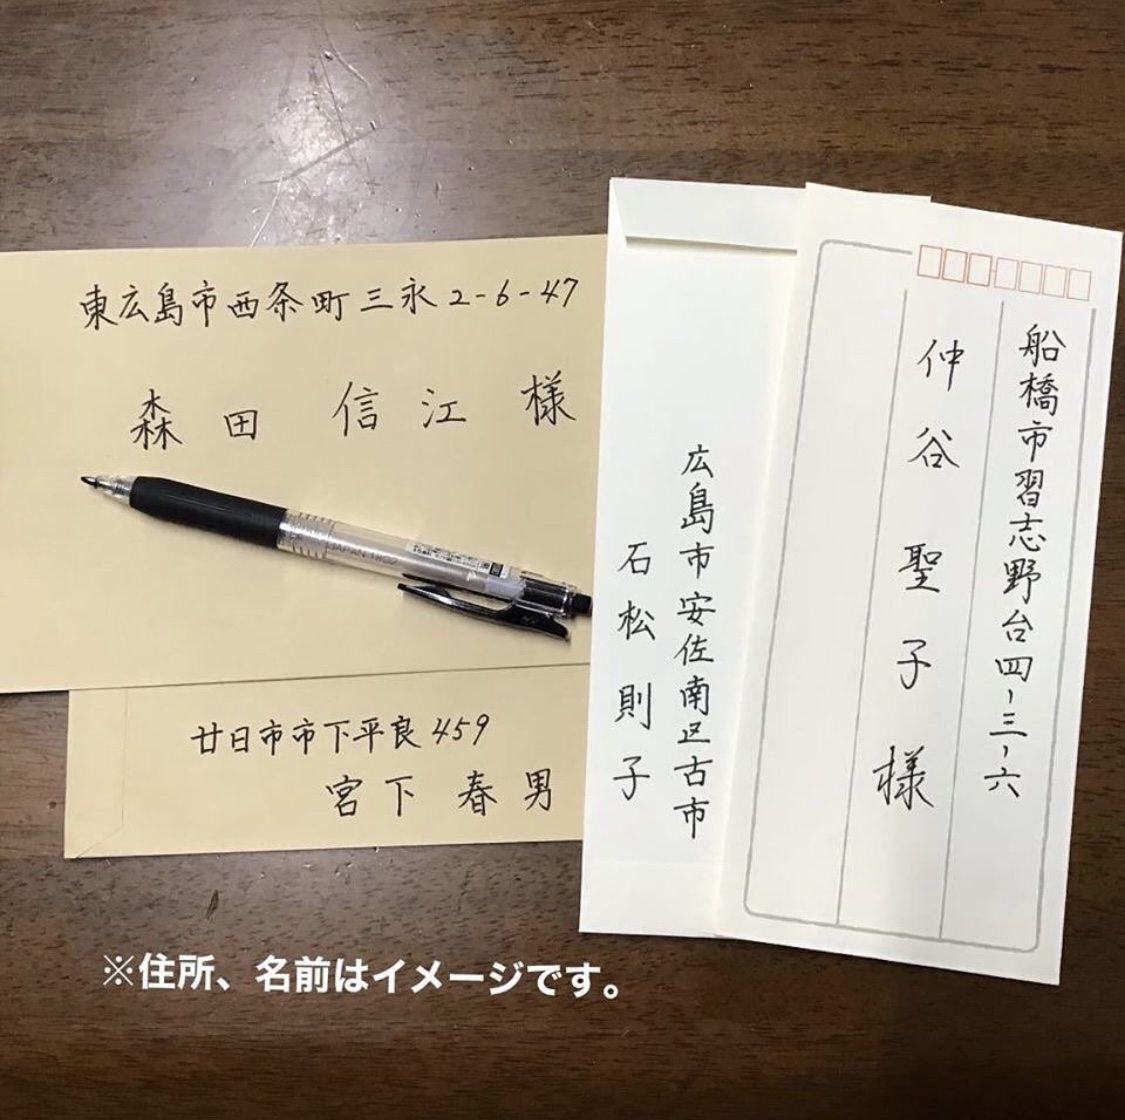 東広島市西条町三永2-6-47
森田 信江 様
廿日市市下平良459
宮下 春男
船橋市習志野台四-三-六
仲谷 聖子 様
広島市安佐南区古市
石松則子
※住所、名前はイメージです。